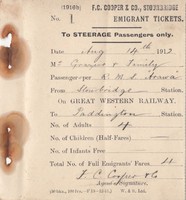 (19169) F.C. COOPER & CO., STOURBRIDGE
No. 1 EMIGRANT TICKETS.
To STEERAGE Passengers only.
Date Aug 14th 1912
Mr Cooper & Family
Passenger per R.M.S.
From Stourbridge Station.
On GREAT WESTERN RAILWAY.
To Paddington Station
No. of Adults 4
No. of Children (Half-Fares)
No. of Infants Free
Total No. of Full Emigrants' Fares 4
F. C. Cooper & Co
Agent's Signature.
W. & S. Ltd.